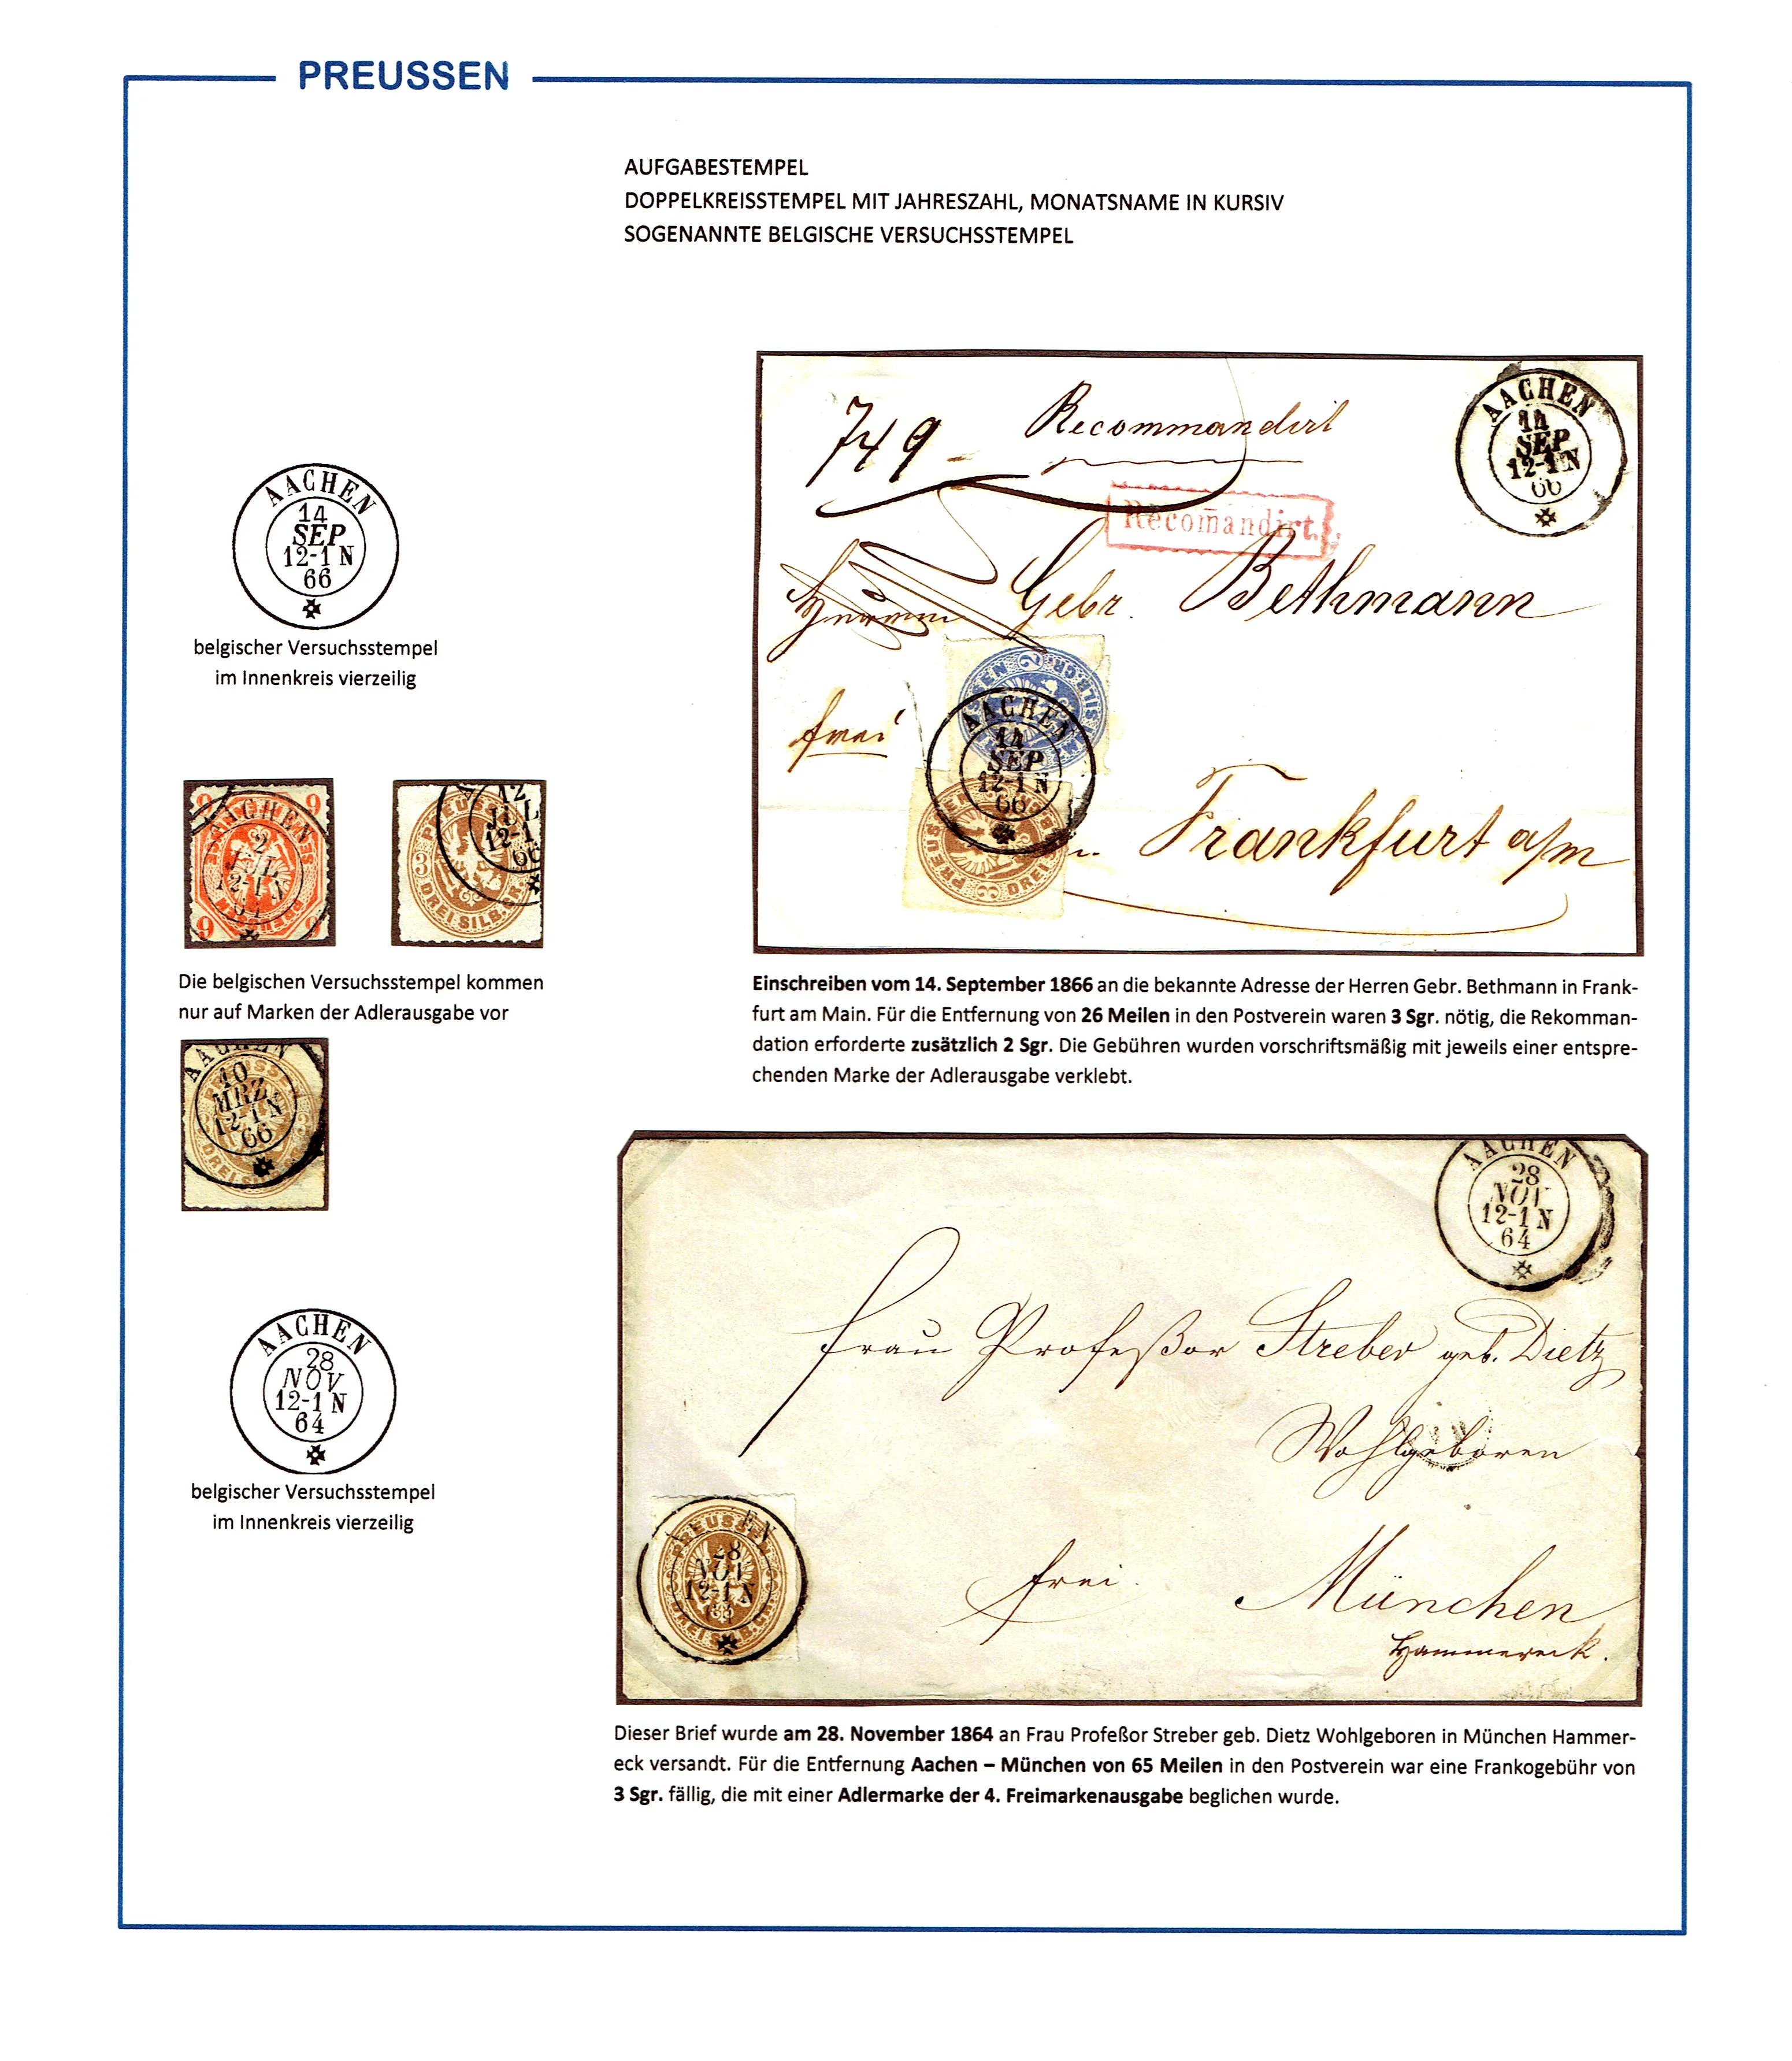 PREUSSEN
AUFGABESTEMPEL
DOPPELKREISSTEMPEL MIT JAHRESZAHL, MONATSNAME IN KURSIV
SOGENANNTE BELGISCHE VERSUCHSSTEMPEL
AACHEN
14
SEP
12-1 N
66
belgischer Versuchsstempel
im Innenkreis vierzeilig
9 9
AACHEN
2
JUL
12-1 N
9 9
12
JUL
12-1
66
PREUSS
3
DREI SILB. GR.
Die belgischen Versuchsstempel kommen
nur auf Marken der Adlerausgabe vor
AACHEN
10
MRZ
12-1 N
66
AACHEN
28
NOV
12-1 N
64
belgischer Versuchsstempel
im Innenkreis vierzeilig
749
Recommandirt
AACHEN
14
SEP
12-1 N
66
Recom̄andirt.
Herren Gebr. Bethmann
frei
2
SILB. GR.
AACHEN
14
SEP
12-1 N
66
PREUS
DREI
Frankfurt a/m
Einschreiben vom 14. September 1866 an die bekannte Adresse der Herren Gebr. Bethmann in Frank-
furt am Main. Für die Entfernung von 26 Meilen in den Postverein waren 3 Sgr. nötig, die Rekomman-
dation erforderte zusätzlich 2 Sgr. Die Gebühren wurden vorschriftsmäßig mit jeweils einer entspre-
chenden Marke der Adlerausgabe verklebt.
AACHEN
28
NOV
12-1 N
64
Frau Profeßor Streber geb. Dietz
Wohlgeboren
frei. München
Hammereck.
PREUSSEN
28
NOV
12-1 N
Dieser Brief wurde am 28. November 1864 an Frau Profeßor Streber geb. Dietz Wohlgeboren in München Hammer-
eck versandt. Für die Entfernung Aachen – München von 65 Meilen in den Postverein war eine Frankogebühr von
3 Sgr. fällig, die mit einer Adlermarke der 4. Freimarkenausgabe beglichen wurde.